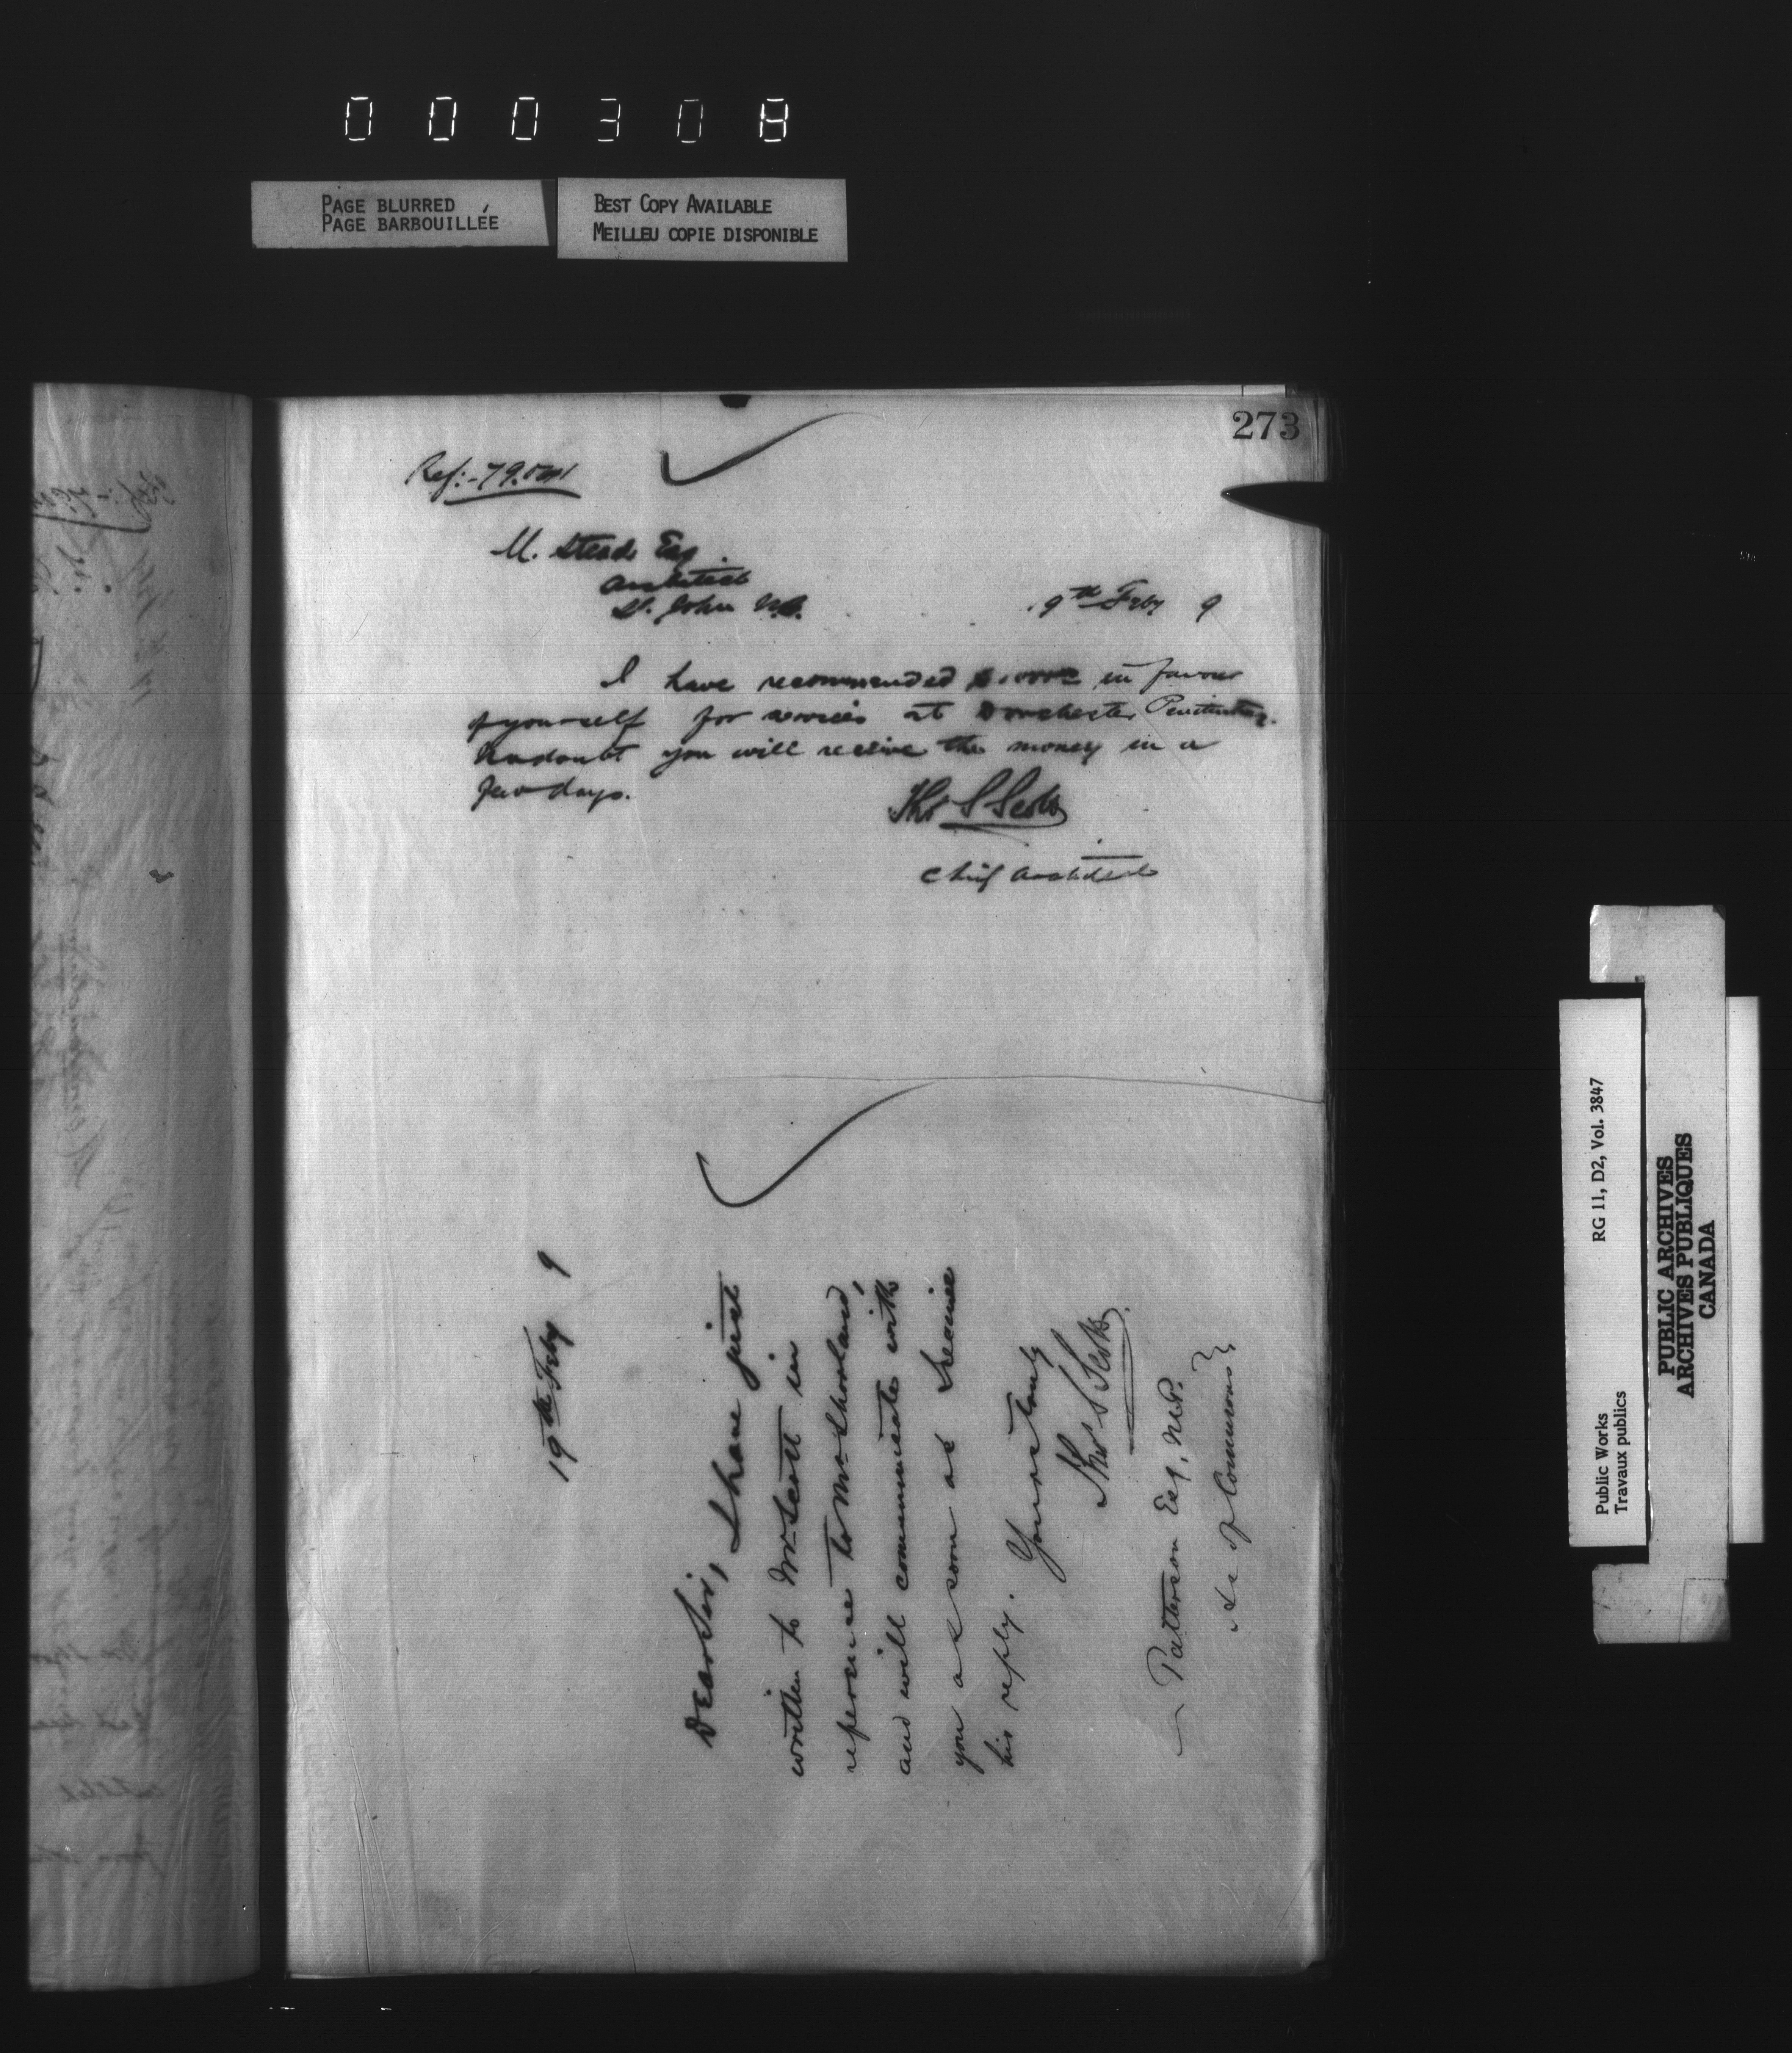 000308
PAGE BLURRED
PAGE BARBOUILLÉE
BEST COPY AVAILABLE
MEILLEU COPIE DISPONIBLE
273
Ref:-
M. Stead Esq
Architect
St. John N.B.
19th Feby 9
I have recommended in favour
of yourself for services at Dorchester Penitentiary.
No doubt you will receive the money in a
few days.
Thos S Scott
Chief Architect
19th Feby 9
Dear Sir, I have just
written to Mr Scott in
reference to Mr
and will communicate with
you as soon as I receive
his reply. Yours truly
Thos S Scott
Patterson Esq. M.P.
Ho of Commons
Public Works
Travaux publics
RG 11, D2, Vol. 3847
PUBLIC ARCHIVES
ARCHIVES PUBLIQUES
CANADA